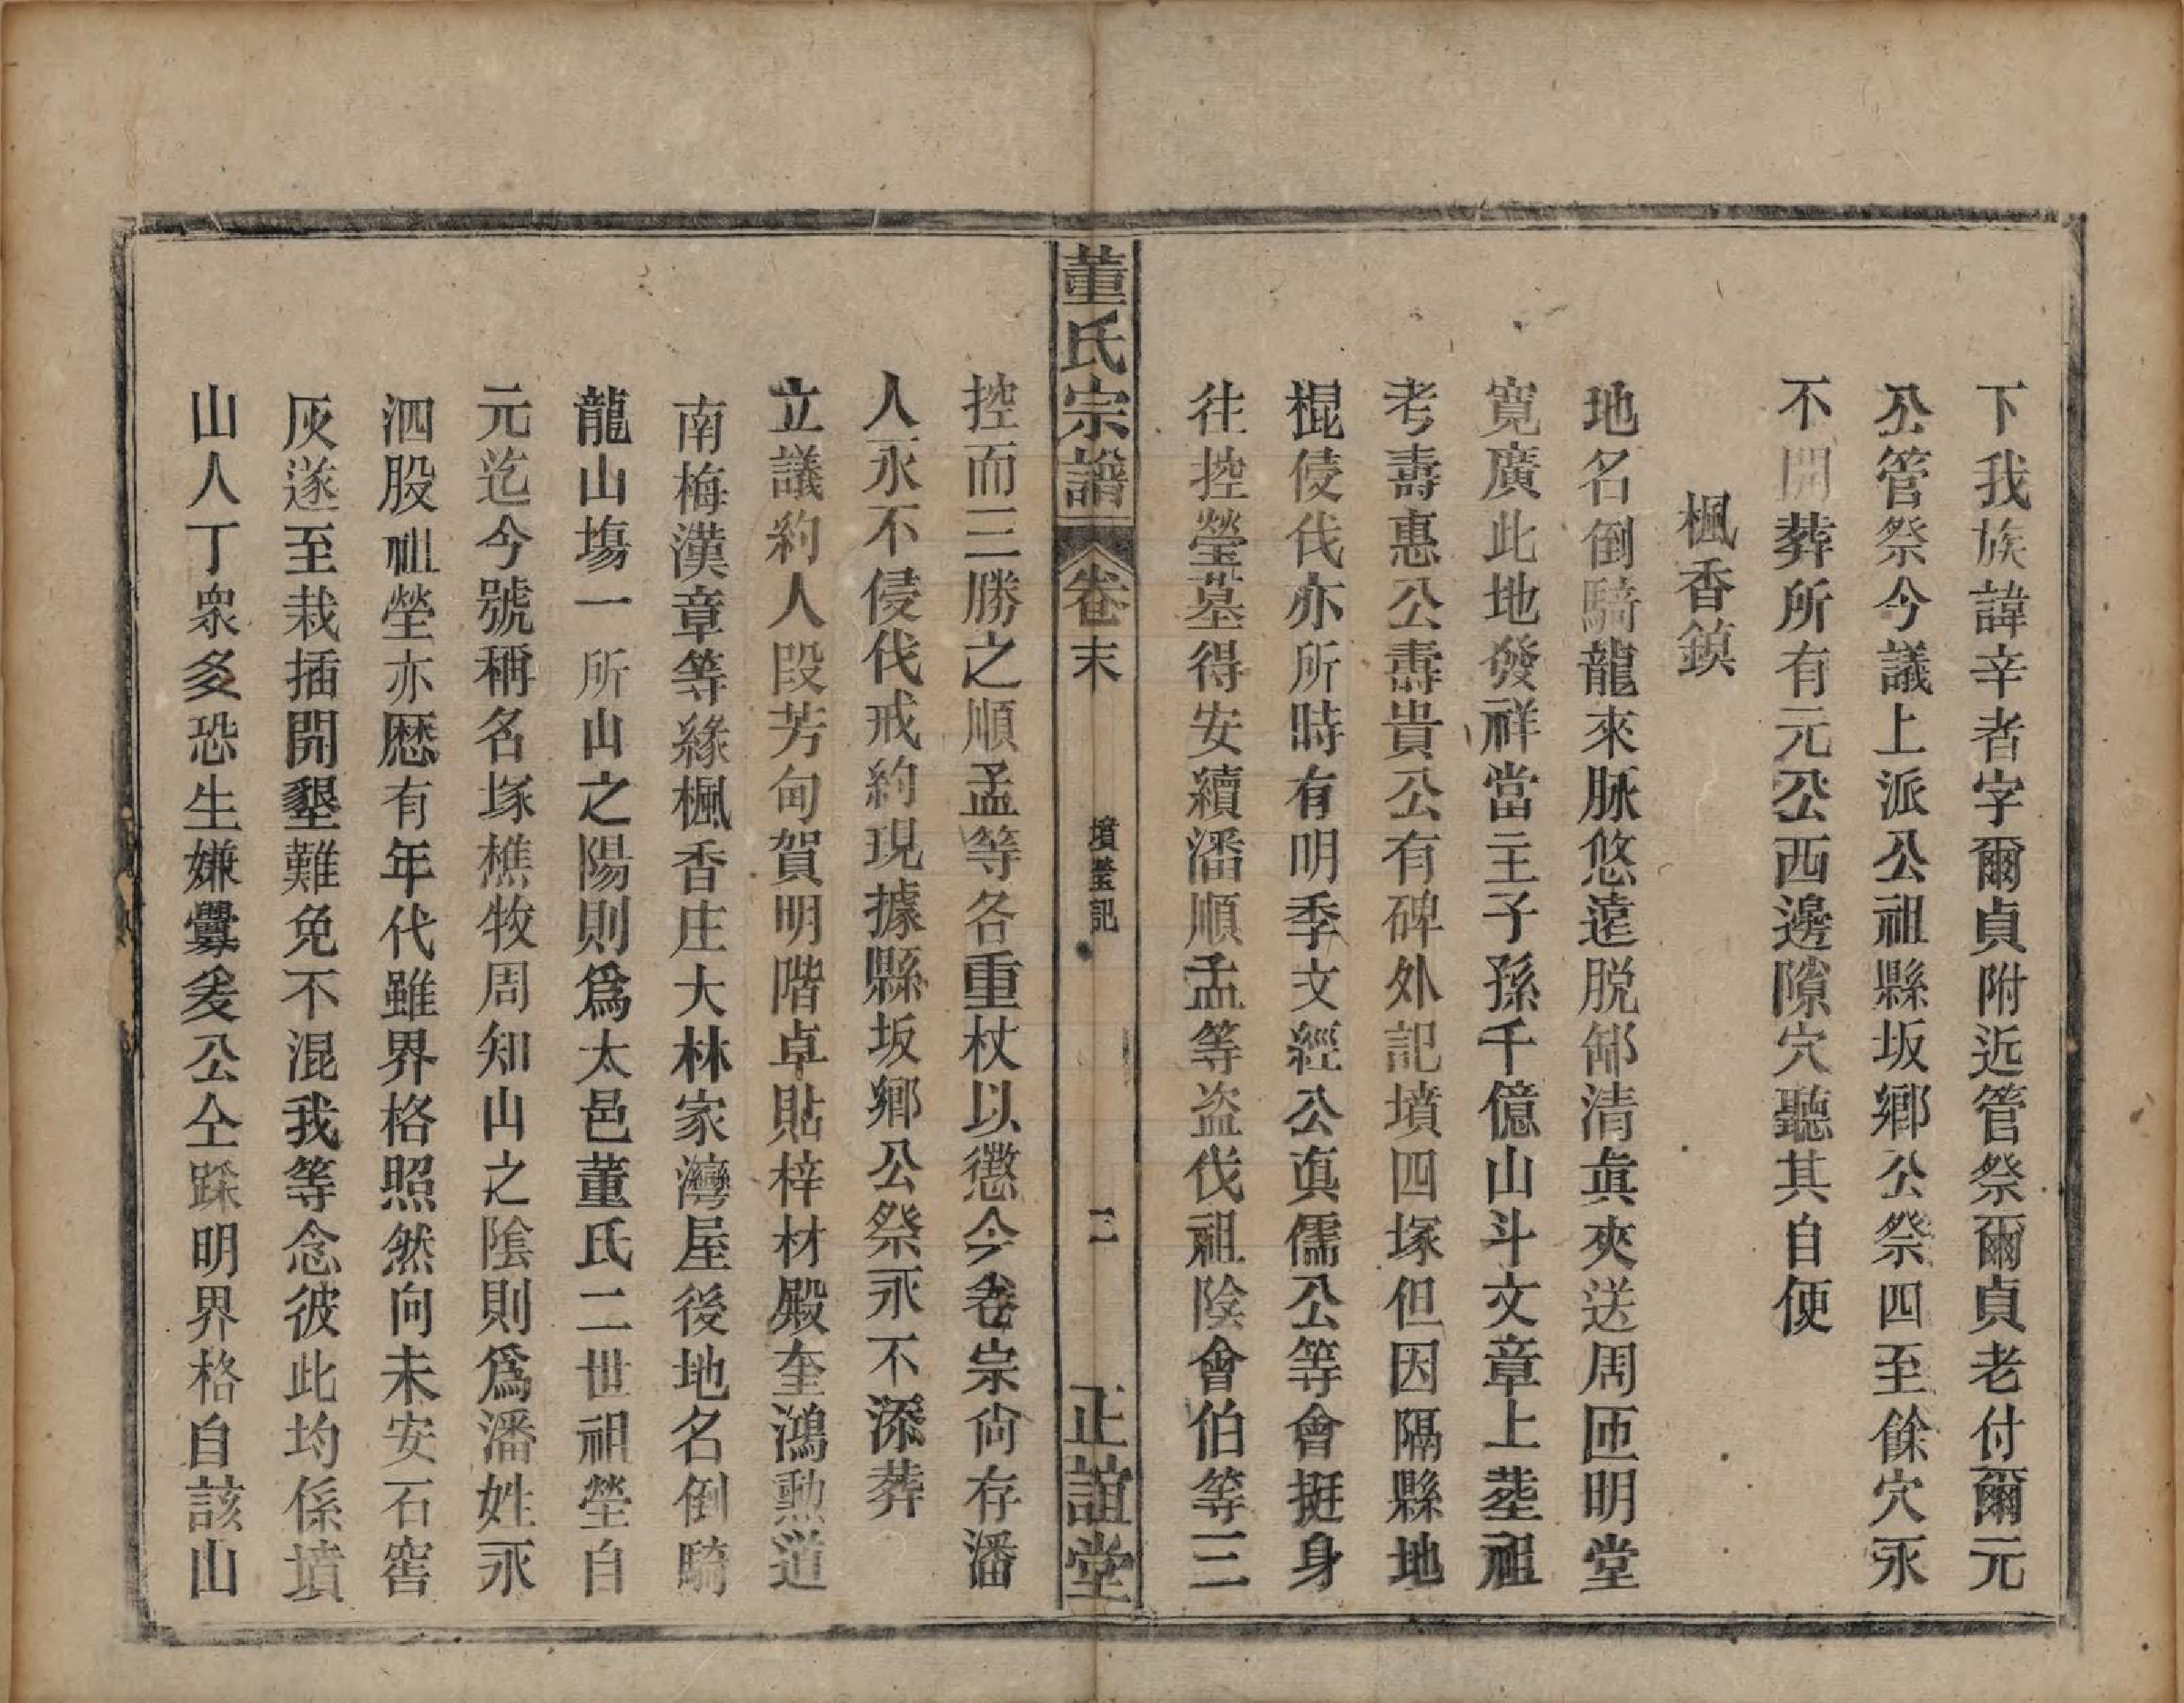 下我族諱辛者字爾貞附近管祭爾貞老付爾元
公管祭今議上派公祖縣坂鄉公祭四至餘穴永
不開葬所有元公西邊隙穴聽其自便
楓香鎮
地名倒騎龍來脉悠遠脱卸清真夾送周匝明堂
寬廣此地發祥當主子孫千億山斗文章上塟祖
考壽惠公壽貴公有碑外記墳四塚但因隔縣地
棍侵伐亦所時有明季文經公真儒公等會挺身
往控瑩墓得安續潘順孟等盗伐祖陰會伯等三
控而三勝之順孟等各重杖以懲今卷宗尚存潘
人永不侵伐戒約現據縣坂鄉公祭永不添葬
立議約人段芳甸賀明階卓貼梓材殿奎鴻勲道
南梅漢章等緣楓香庄大林家灣屋後地名倒騎
龍山塲一所山之陽則爲太邑董氏二世祖塋自
元迄今號稱名塚樵牧周知山之隂則爲潘姓永
泗股祖塋亦歷有年代雖界格照然向未安石窖
灰遂至栽插開墾難免不混我等念彼此均係墳
山人丁衆多恐生嫌釁爰公仝踩明界格自該山
董氏宗譜 卷末 墳塋記 三 正誼堂